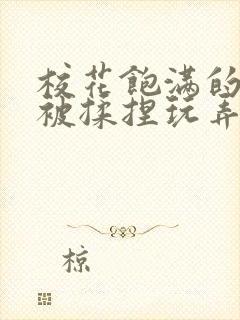 校花飽满的
被揉捏玩弄
椋